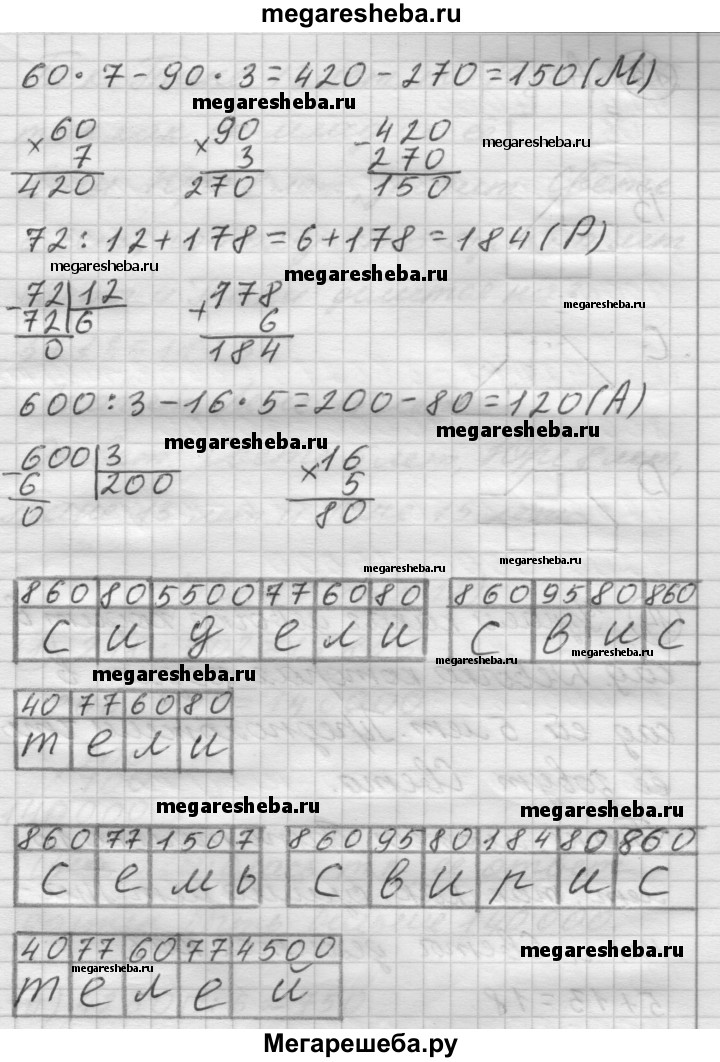 megaresheba.ru
60 · 7 - 90 · 3 = 420 - 270 = 150 (М)
megaresheba.ru
× 60 × 90 - 420
megaresheba.ru
7 3 270
420 270 150
72 : 12 + 178 = 6 + 178 = 184 (Р)
megaresheba.ru megaresheba.ru
- 72 | 12 + 178
megaresheba.ru
72 | 6 6
0 184
600 : 3 - 16 · 5 = 200 - 80 = 120 (А)
megaresheba.ru megaresheba.ru
- 600 | 3 × 16
6 | 200 5
0 80
megaresheba.ru megaresheba.ru
860 80 5500 77 60 80 860 95 80 860
с и д е л и с в и с
megaresheba.ru megaresheba.ru megaresheba.ru
40 77 60 80
т е л и
megaresheba.ru megaresheba.ru
860 77 150 7 860 95 80 184 80 860
с е м ь с в и р и с
40 77 60 77 4500
megaresheba.ru megaresheba.ru
т е л е й
5 + 13 = 18
Мегарешеба.ру